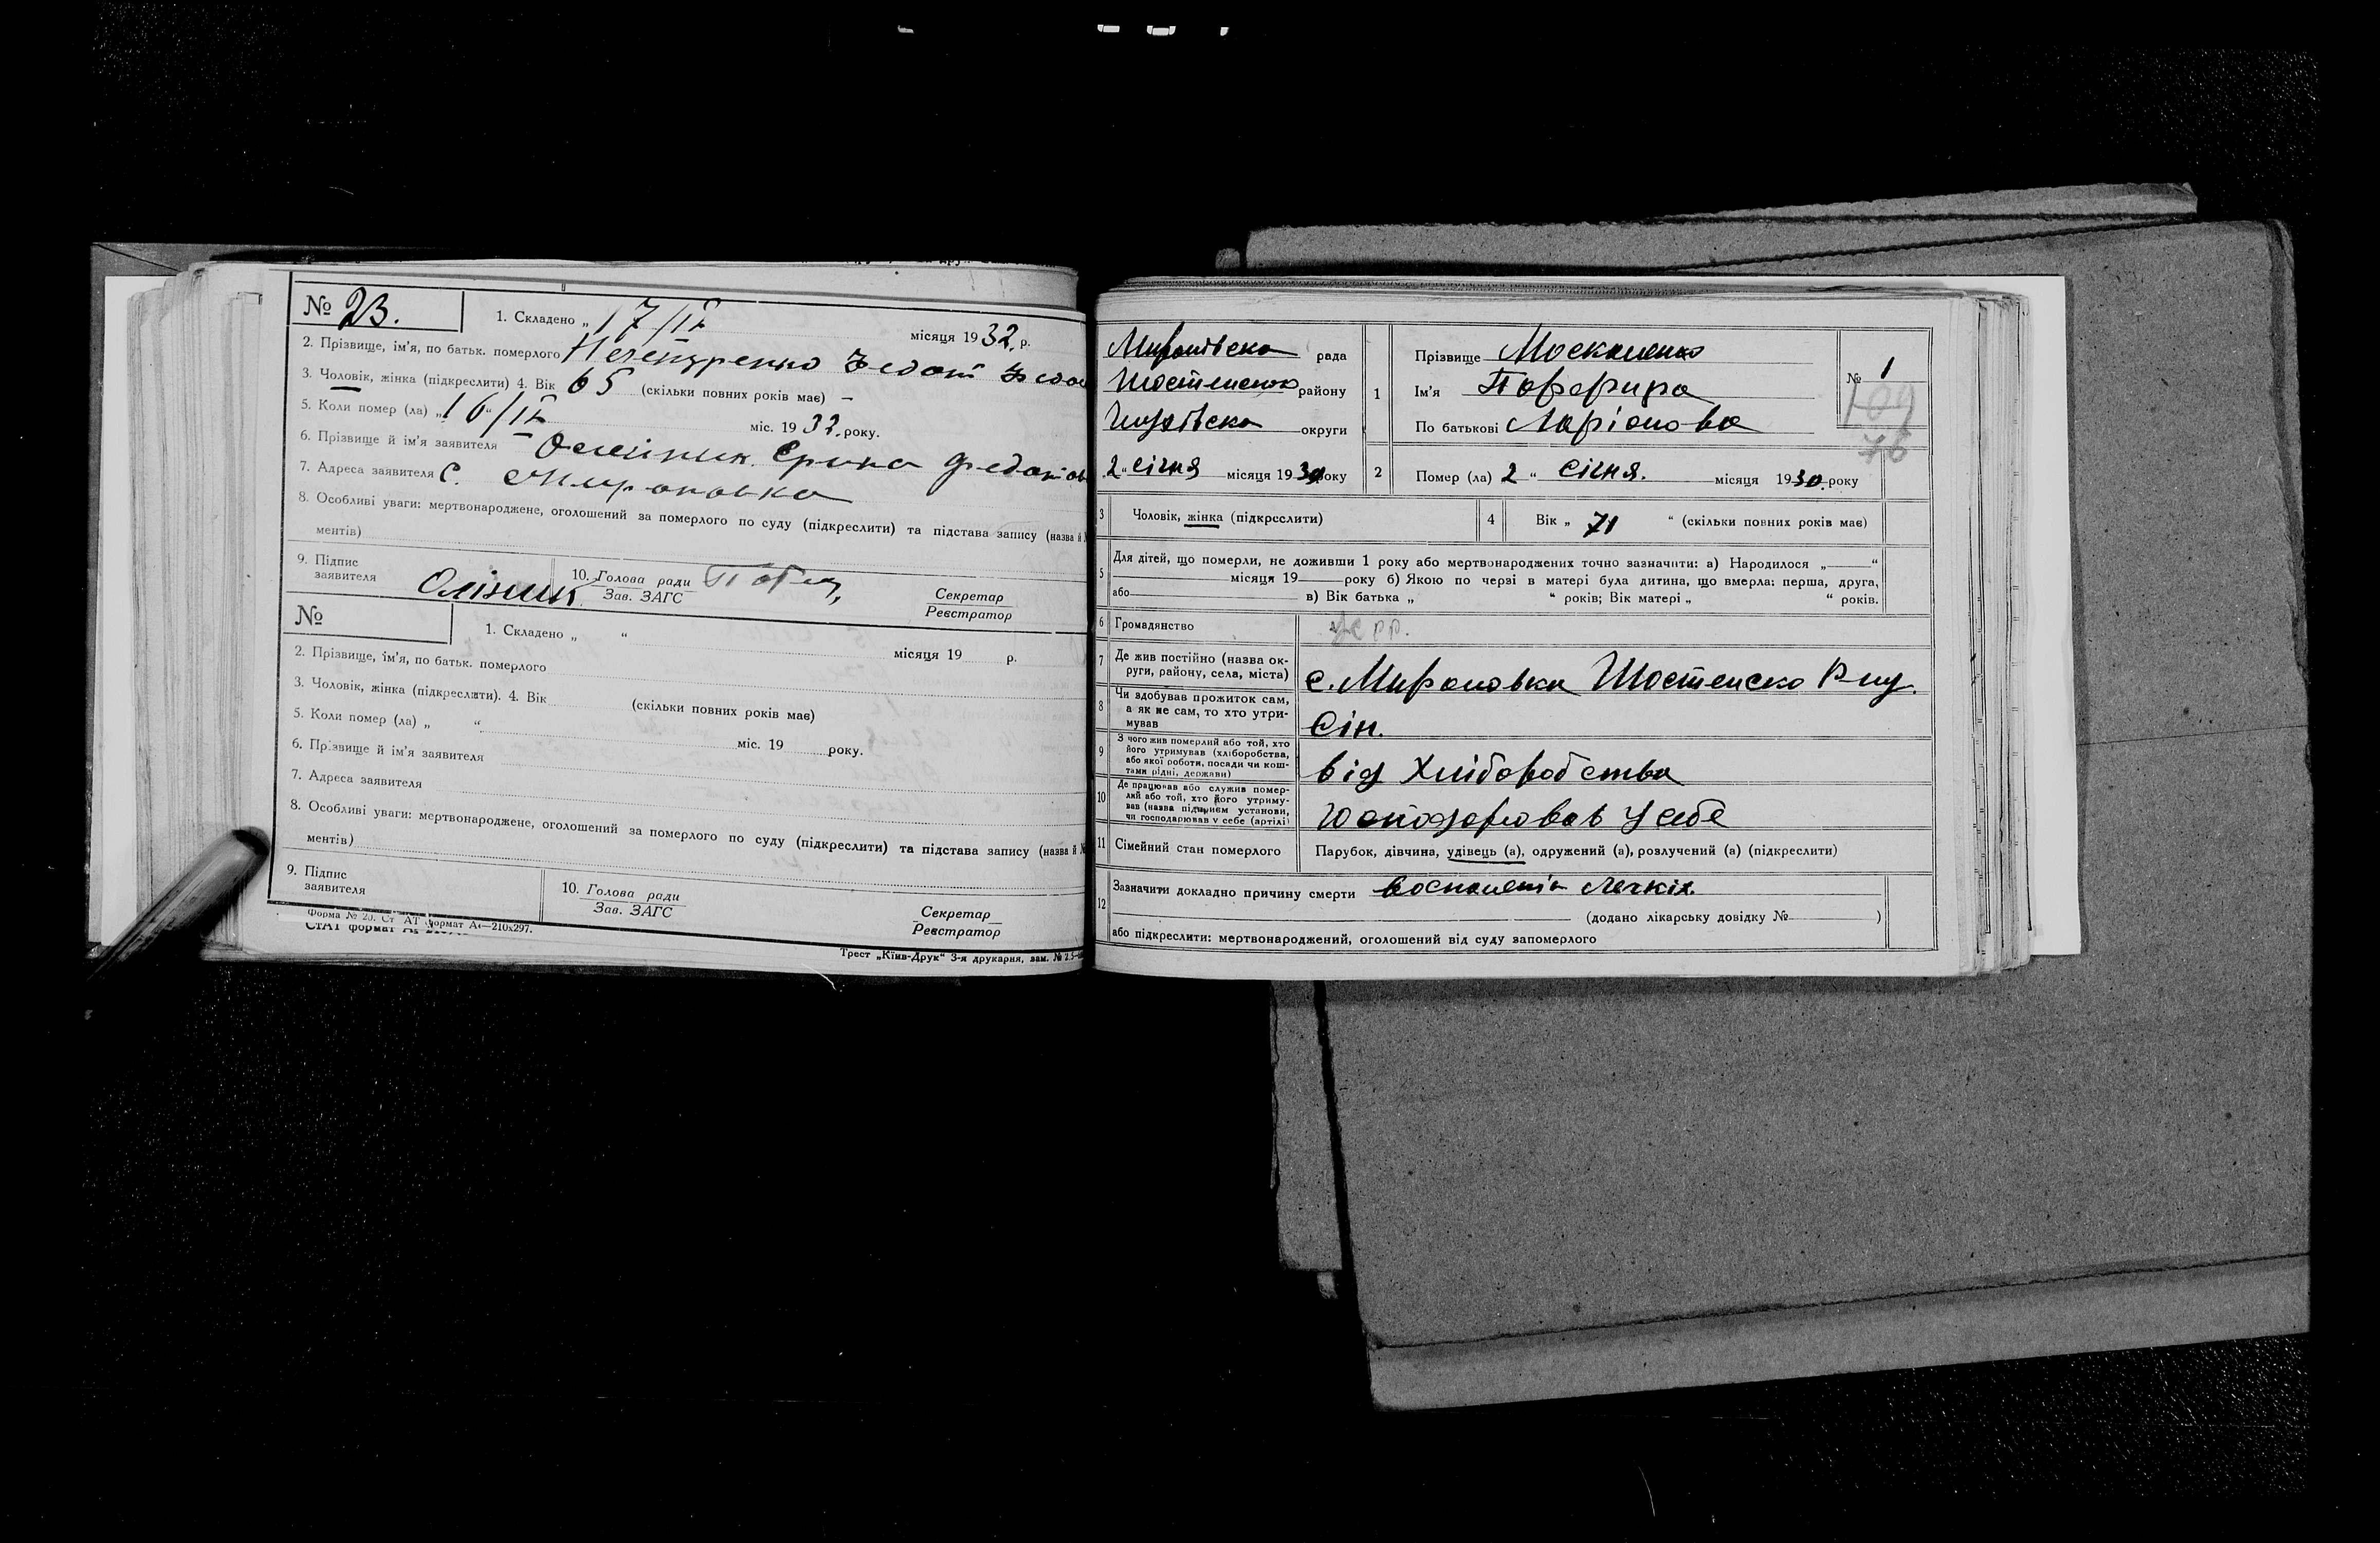 № 23.
1. Складено „ 17/IX місяця 1932. р.
2. Прізвище, ім'я, по батьк. померлого Нечепуренко Федот Федо
3. Чоловік, жінка (підкреслити) 4. Вік 65 (скільки повних років має) —
5. Коли помер (ла) „ 16 “/IX міс. 1932. року.
6. Прізвище й ім'я заявителя
7. Адреса заявителя С. Мироновка
8. Особливі уваги: мертвонароджене, оголошений за померлого по суду (підкреслити) та підстава запису (назва й №
ментів)
9. Підпис
заявителя
10. Голова ради
Зав. ЗАГС
Секретар
Реєстратор
№
1. Складено „ “ місяця 19 р.
2. Прізвище, ім'я, по батьк. померлого
3. Чоловік, жінка (підкреслити). 4. Вік (скільки повних років має)
5. Коли помер (ла) „ “ міс. 19 року.
6. Прізвище й ім'я заявителя
7. Адреса заявителя
8. Особливі уваги: мертвонароджене, оголошений за померлого по суду (підкреслити) та підстава запису (назва й №
ментів)
9. Підпис
заявителя
10. Голова ради
Зав. ЗАГС
Секретар
Реєстратор
Форма № 20. Ст АТ формат А4—210х297.
СтАТ формат
Трест „Київ-Друк“ 3-я друкарня, зам. №
Миронівська рада
Шостенської району
округи
1
Прізвище Москаленко
Ім'я Порфира
По батькові Ларіонова
№ 1
109
76
2 “ січня місяця 1930 року
2
Помер (ла) 2 “ січня. місяця 1930. року
3
Чоловік, жінка (підкреслити)
4
Вік „ 71 “ (скільки повних років має)
5
Для дітей, що померли, не доживши 1 року або мертвонароджених точно зазначити: а) Народилося „ “
місяця 19 року б) Якою по черзі в матері була дитина, що вмерла: перша, друга,
або в) Вік батька „ “ років; Вік матері „ “ років.
6 Громадянство УСРР.
7 Де жив постійно (назва ок-
руги, району, села, міста)
с. Мироновка Шостенско Р-ну.
8 Чи здобував прожиток сам,
а як не сам, то хто утри-
мував
Сін.
9 З чого жив померлий або той, хто
його утримував (хліборобства,
або якої роботи, посади чи кош-
тами рідні, держави)
від Хліборобства
10 Де працював або служив помер-
лий або той, хто його утриму-
вав (назва підприєм установи,
чи господарював у себе (артілі)
Господарював У себе
11 Сімейний стан померлого
Парубок, дівчина, удівець (а), одружений (а), розлучений (а) (підкреслити)
12
Зазначити докладно причину смерти Воспаленія Легкіх.
(додано лікарську довідку № )
або підкреслити: мертвонароджений, оголошений від суду запомерлого